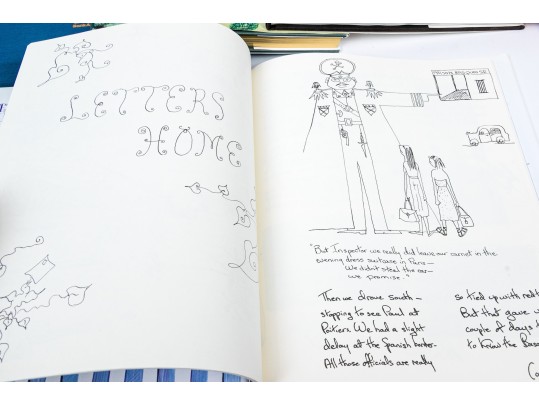 LETTERS
HOME
"But Inspector we really did leave our carnet in the
evening dress suitcase in Paris –
We didn't steal the car –
we promise."
Then we drove south –
stopping to see Paul at
Poitiers. We had a slight
delay at the Spanish border–
All those officials are really
so tied up with red t
But that gave u
couple of days t
to know the Basq